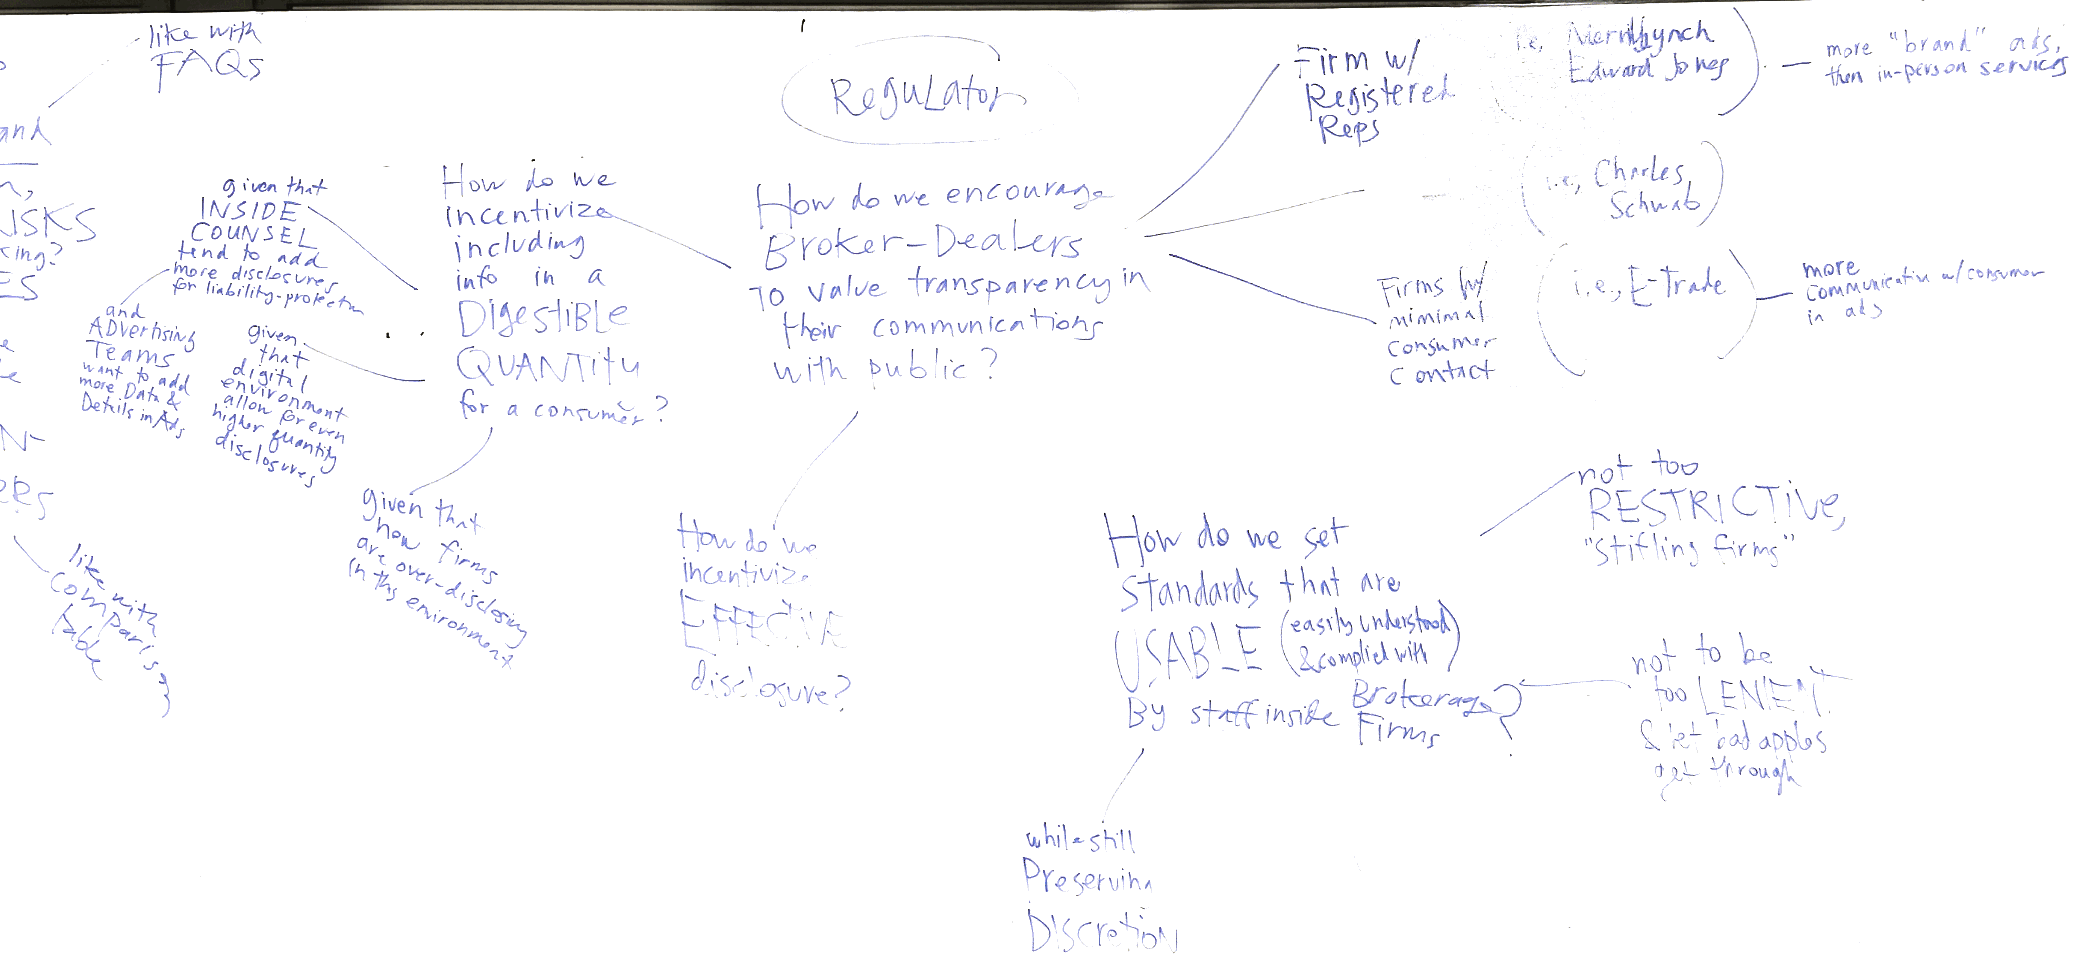 like with
FAQs
and
ISKS
ES
N-
ERS
like with
comparison
table
given that
INSIDE
COUNSEL
tend to add
more disclosures
for liability-protectn
and
ADvertising
Teams
want to add
more Data &
Details in Ads
given
that
digital
environment
allow for even
higher quantity
disclosures
How do we
incentivize
including
info in a
DigestiBLE
QUANTity
for a consumer?
given that
now firms
are over-disclosing
in this environment
ReguLator
How do we encourage
BroKer-DeaLers
TO value transparency in
their communications
with public?
How do we
incentivize
EFFECTIVE
disclosure?
Firm w/
Registered
Reps
i.e., Merrill Lynch
Edward Jones
more "brand" ads,
then in-person services
i.e., Charles
Schwab
Firms w/
minimal
consumer
contact
i.e., E-Trade
more
communicative w/consumer
in ads
How do we set
Standards that are
USABLE (easily understood
& complied with)
By staff inside Brokerage
Firms?
not too
RESTRICTive,
"Stifling firms"
not to be
too LENIENT
& let bad apples
get through
while still
Preserving
DiscretioN